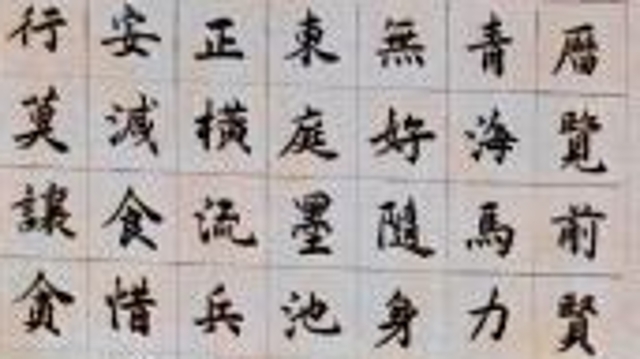 曆覽前賢
青海馬力
無好隨身
東庭墨池
正橫流兵
安減食惜
行莫讓貪